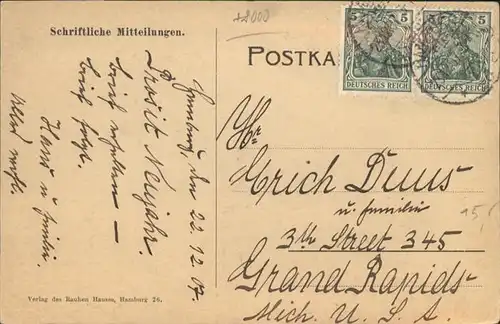 +2000
Schriftliche Mitteilungen.
POSTKA
5
5
DEUTSCHES REICH
DEUTSCHES REICH
Hamburg, den 22.12.07.
Prosit Neujahr.
Brief erhalten —
Brief folgt.
Hans u familie.
Hr
Erich Duus
u. familie
3th Street 345
Grand Rapids
Mich. U. S. A.
Verlag des Rauhen Hauses, Hamburg 26.